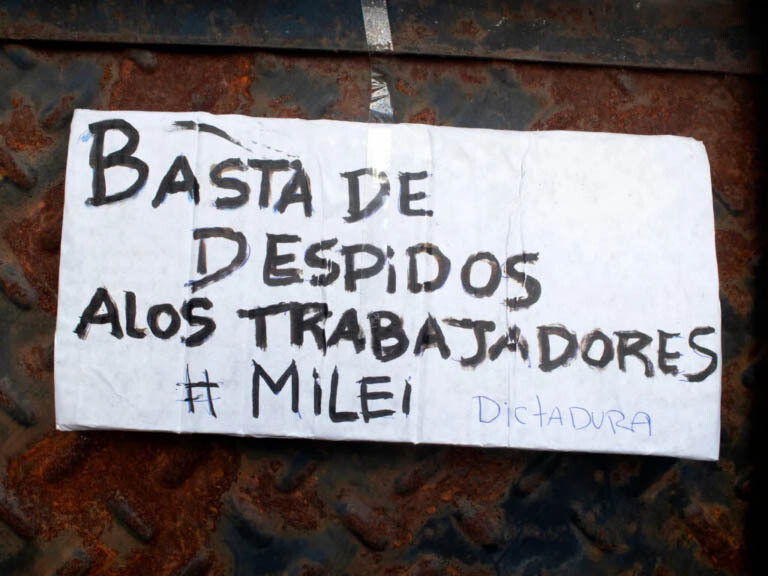 BASTA DE
DESPiDOS
ALOS TRABAJADORES
# MiLEi
DictADURA